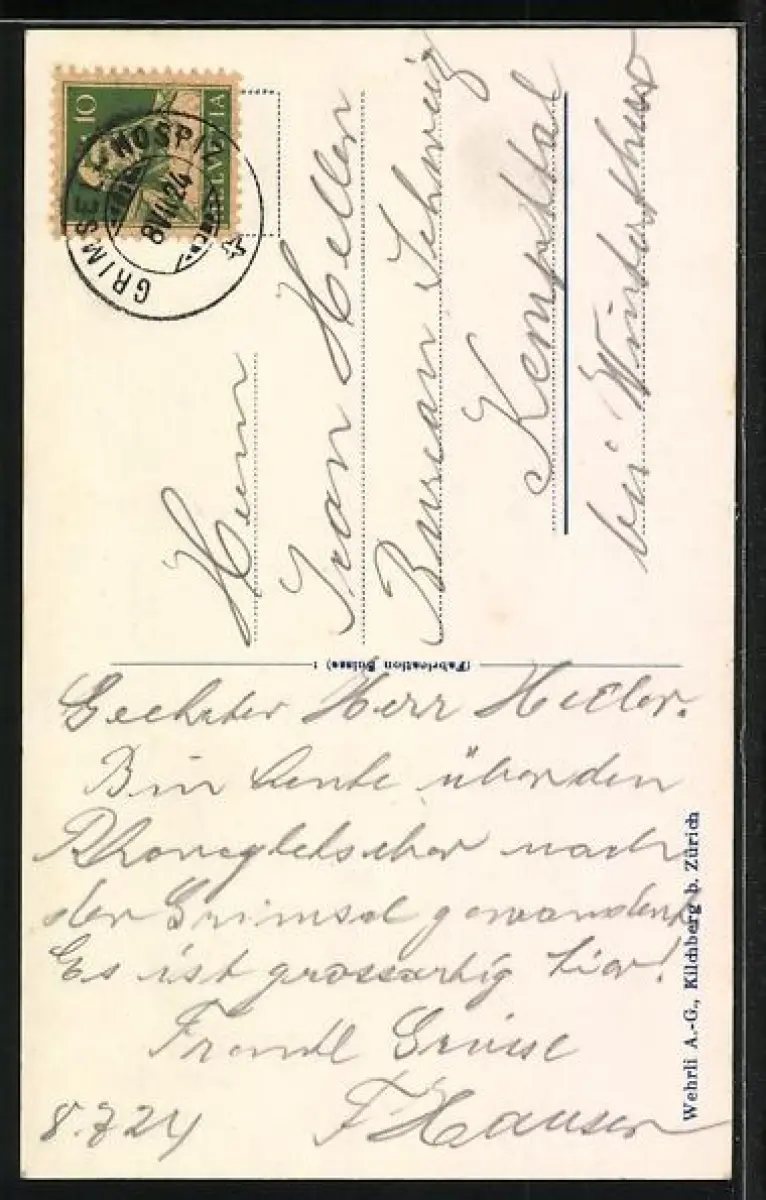 10
HELVETIA
GRIMSEL-HOSPIZ
8.VII.24
Herrn
Ivan Heller
Bureau Schweiz
Kemptthal
bei Winterthur
(Fabrication Suisse)
Geehrter Herr Heller.
Bin heute über den
Rhonegletscher nach
der Grimsel gewandert
Es ist grossartig hier!
Frdl. Grüsse
8.7.24 F. Hauser
Wehrli A.-G., Kilchberg b. Zürich